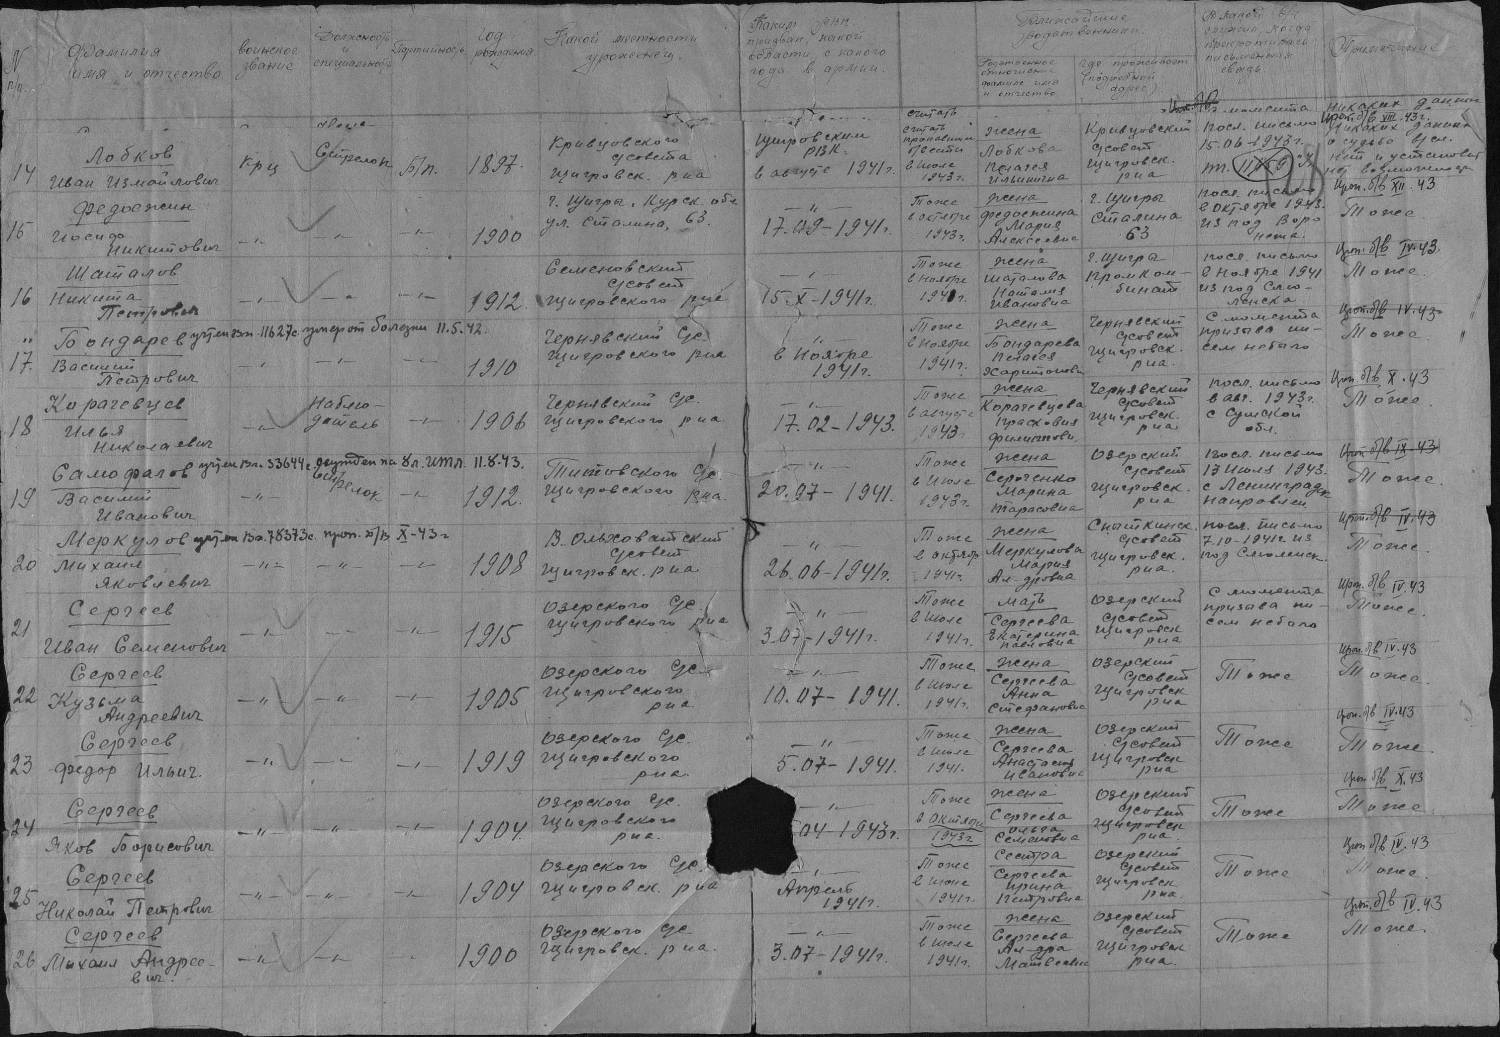 N п/п.
Фамилия
имя и отчество
воинское
звание
Должность
и
специальность
Партийность
год
рождения
Какой местности
уроженец.
Каким
призван, какой
области с какого
года в армии.
Ближайшие
родственники.
Родственное
отношение
фамилия имя
и отчество
где проживают
(подробный
адрес)
когда
прекратилась
письменная
связь
Примечание
считать
14
Лобков
Иван Измайлович
Кр-ц
Стрелок
Б/п.
1897.
Кривцовского
с/совета
Щигровск. р-на
Щигровским
РВК.
в августе 1941г.
считать
пропавшим
б/вести
в июле
1943г.
жена
Лобкова
Пелагея
Ильинична
Кривцовский
с/совет
Щигровск.
р-на
с момента
посл. письмо
15.06-1943г.
никаких данных
Проп. б/в VIII-43г.
Никаких данных
о судьбе
нет и установит
не возможно
15
Федосекин
Иосиф
Никитович
—„—
1900
г. Щигры, Курск. обл
ул. Сталина, 63.
—„—
17.09-1941г.
Тоже
в октябре
1943г.
жена
Федосекина
Мария
Алексеевна
г. Щигры
Сталина
63
посл. письмо
в октябре 1943.
из под Воро
нежа.
Проп. б/в XII-43
Тоже.
16
Шаталов
Никита
Петрович
—„—
1912
Семеновский
с/совет
Щигровского р-на
—„—
15.X-1941г.
Тоже
в ноябре
1941г.
жена
Шаталова
Наталия
Ивановна
г. Щигры
Промком-
бинат
посл. письмо
в ноябре 1941
из под Смо-
ленска
Проп. б/в IV-43.
Тоже.
17.
Бондарев учтен вх. 11627с умер от болезни 11.5.42.
Василий
Петрович
—„—
1910
Чернявский с/с.
Щигровского р-на
—„—
в ноябре
1941г.
Тоже
в ноябре
1941г.
жена
Бондарева
Пелагея
Харитоновн
Чернявский
с/совет
Щигровск.
р-на.
С момента
призыва пи-
сем небыло
Проп. б/в IV-43
Тоже.
18
Корачевцев
Илья
Николаевич
—„—
Наблю-
датель
—„—
1906
Чернявский с/с.
Щигровского р-на
—„—
17.02-1943.
Тоже
в августе
1943г.
жена
Корачевцева
Прасковия
Филиппов.
Чернявский
с/совет
Щигровск.
р-на
посл. письмо
в авг. 1943г.
с Сумской
обл.
Проп. б/в X-43
Тоже.
19
Самофалов учтен вх. 53644с осужден на 8 л. ИТЛ. 11.8.43.
Василий
Иванович
—„—
Стрелок
—„—
1912.
Титовского с/с.
Щигровского р-на.
—„—
20.07-1941.
Тоже
в июле
1943г.
жена
Сероченко
Марина
Тарасовна
Озерский
с/совет
Щигровск.
р-на
посл. письмо
17 июля 1943.
с Ленинградск
направлен
Проп. б/в IX-43
Тоже.
20
Меркулов учтен вх. 78373с. проп. б/в X-43г
Михаил
Яковлевич
—„—
1908
В. Ольховатский
с/совет
Щигровск. р-на
—„—
26.06-1941г.
Тоже
в октябр
1941г.
жена
Меркулова
Мария
Ал-дровна
Сныткинск.
с/совет
Щигровск.
р-на.
посл. письмо
7.10-1941г. из
под Смоленск
Проп. б/в IV-43
Тоже.
21
Сергеев
Иван Семенович
—„—
1915
Озерского с/с.
Щигровского р-на
—„—
3.07-1941г.
Тоже
в июле
1941г.
мать
Сергеева
Екатерина
Павловна
Озерский
с/совет
Щигровск
р-на
С момента
призыва пи-
сем небыло
Проп. б/в IV.43
Тоже.
22
Сергеев
Кузьма
Андреевич
—„—
1905
Озерского с/с
Щигровского
р-на
—„—
10.07-1941.
Тоже
в июле
1941г.
жена
Сергеева
Анна
Стефановна
Озерский
с/совет
Щигровск
р-на
Тоже
Проп. б/в IV-43
Тоже.
23
Сергеев
Федор Ильич.
—„—
1919
Озерского с/с.
Щигровского
р-на.
—„—
5.07-1941.
Тоже
в июле
1941.
жена
Сергеева
Анастасия
Исаковна
Озерский
с/совет
Щигровск
р-на
Тоже
Проп. б/в IV-43
Тоже.
24
Сергеев
Яков Борисович
—„—
1904.
Озерского с/с.
Щигровского
р-на.
—„—
04-1943г.
Тоже
в октябре
1943г
жена
Сергеева
Ольга
Семеновна
Озерский
с/совет
Щигровск
р-на
Тоже
Проп. б/в X.43
Тоже.
25
Сергеев
Николай Петрович
—„—
1904
Озерского с/с.
Щигровск. р-на
—„—
Апрель
1941г.
Тоже
в июне
1941г.
Сестра
Сергеева
Ирина
Петровна
Озерский
с/совет
Щигровск
р-на.
Тоже
Проп. б/в IV-43
Тоже.
26
Сергеев
Михаил Андрее-
вич.
—„—
1900
Озерского с/с
Щигровск. р-на.
—„—
3.07-1941г.
Тоже
в июле
1941г.
жена
Сергеева
Ал-дра
Матвеевна
Озерский
с/совет
Щигровск
р-на.
Тоже
Проп. б/в IV-43
Тоже.